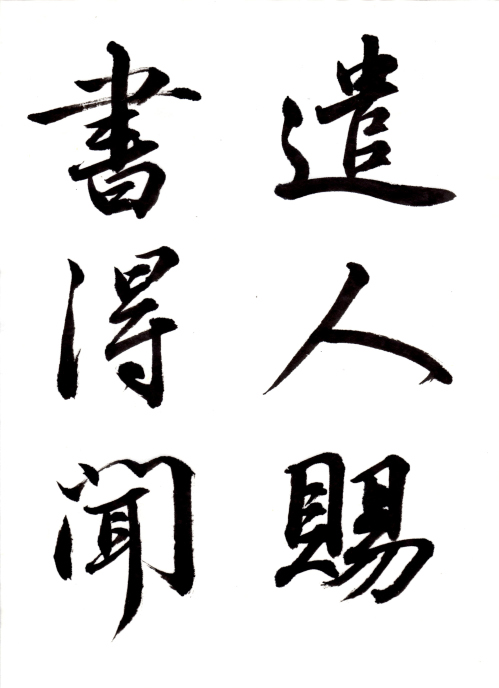 遣人賜
書得聞